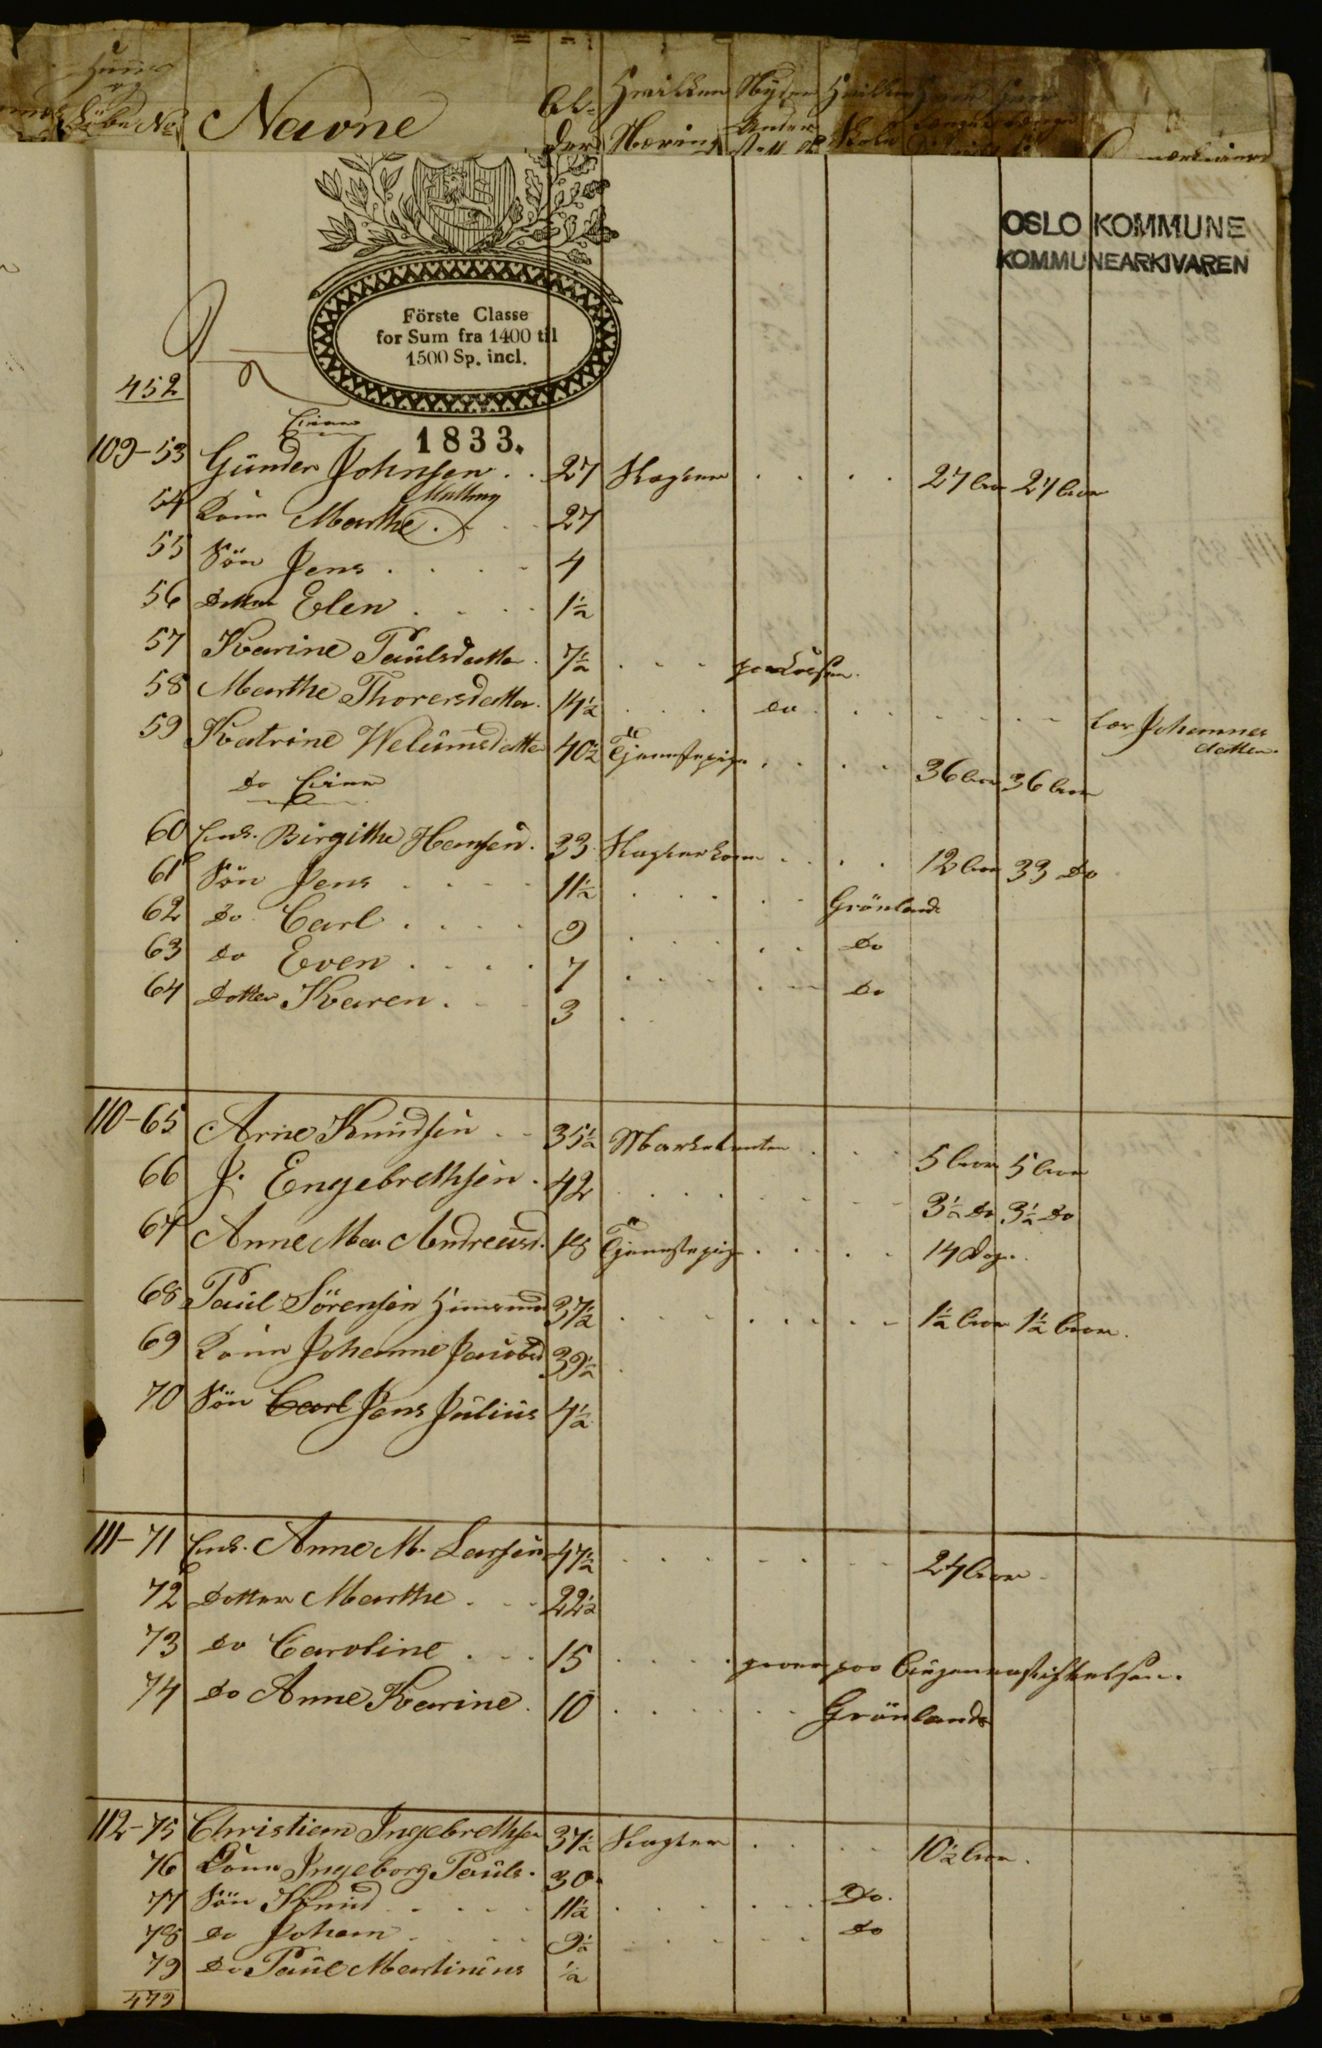 Huus og Löbe No Navne Alder Hvilken Næring Nyder Under Hvilken Skole
OSLO KOMMUNE
KOMMUNEARKIVAREN
Förste Classe
for Sum fra 1400 til
1500 Sp. incl.
452
1833.
Eier
109-53 Gunder Johnsen . . 27 27 24
Mathea
54 Kone Marthe . . 27
55 Sön Jens . . . . 4
56 Datter Elen . . . . 1½
57 Karine Paulsdatter . 7½
58 Marthe Thorersdatter . 14½ . . . do . . . . . Johannes
datter
59 Katrine Welumsdatter 40½ Tjenestepige . . . . 36 36
Do Eier
60 Enk. Birgithe Hansen . 33 . . . . 12 33 Do
61 Sön Jens . . . . 11½ . . . . . Grönland
62 Do Carl . . . . 9 . . . . . Do
63 do Even . . . . 7 . . . . . Do
64 Datter Karen . . . 3 .
110-65 Arne Knudsen . . 35½ . . . 5 5
66 J. Engebrethsen . 42 . . . . . . . 3½ Do 3½ Do
67 Anne Mar Andreasd. 18 Tjenestepige . . . . . 14 Dage
68 Paul Sörensen 37½ . . . . . . . 1½ 1½
69 Kone Johanne Jacobsd 39½ .
70 Sön Carl Jens Julius 4½
111-71 Enk. Anne M. Larsen 47½ . . . . . . . 24
72 Datter Marthe . . . 22½
73 do Caroline . . . 15 . . . .
74 do Anne Karine . 10 . . . . . . Grönland
112-75 Christian Ingebrethsen 37½ . . . . 10½
76 Kone Ingeborg Pauls. 30
77 Sön Knud . . . . . 11½ . . . . . . Do.
78 do Johan . . . . . 9½ . . . . . . do
79 Do Paul Martinius ½
479